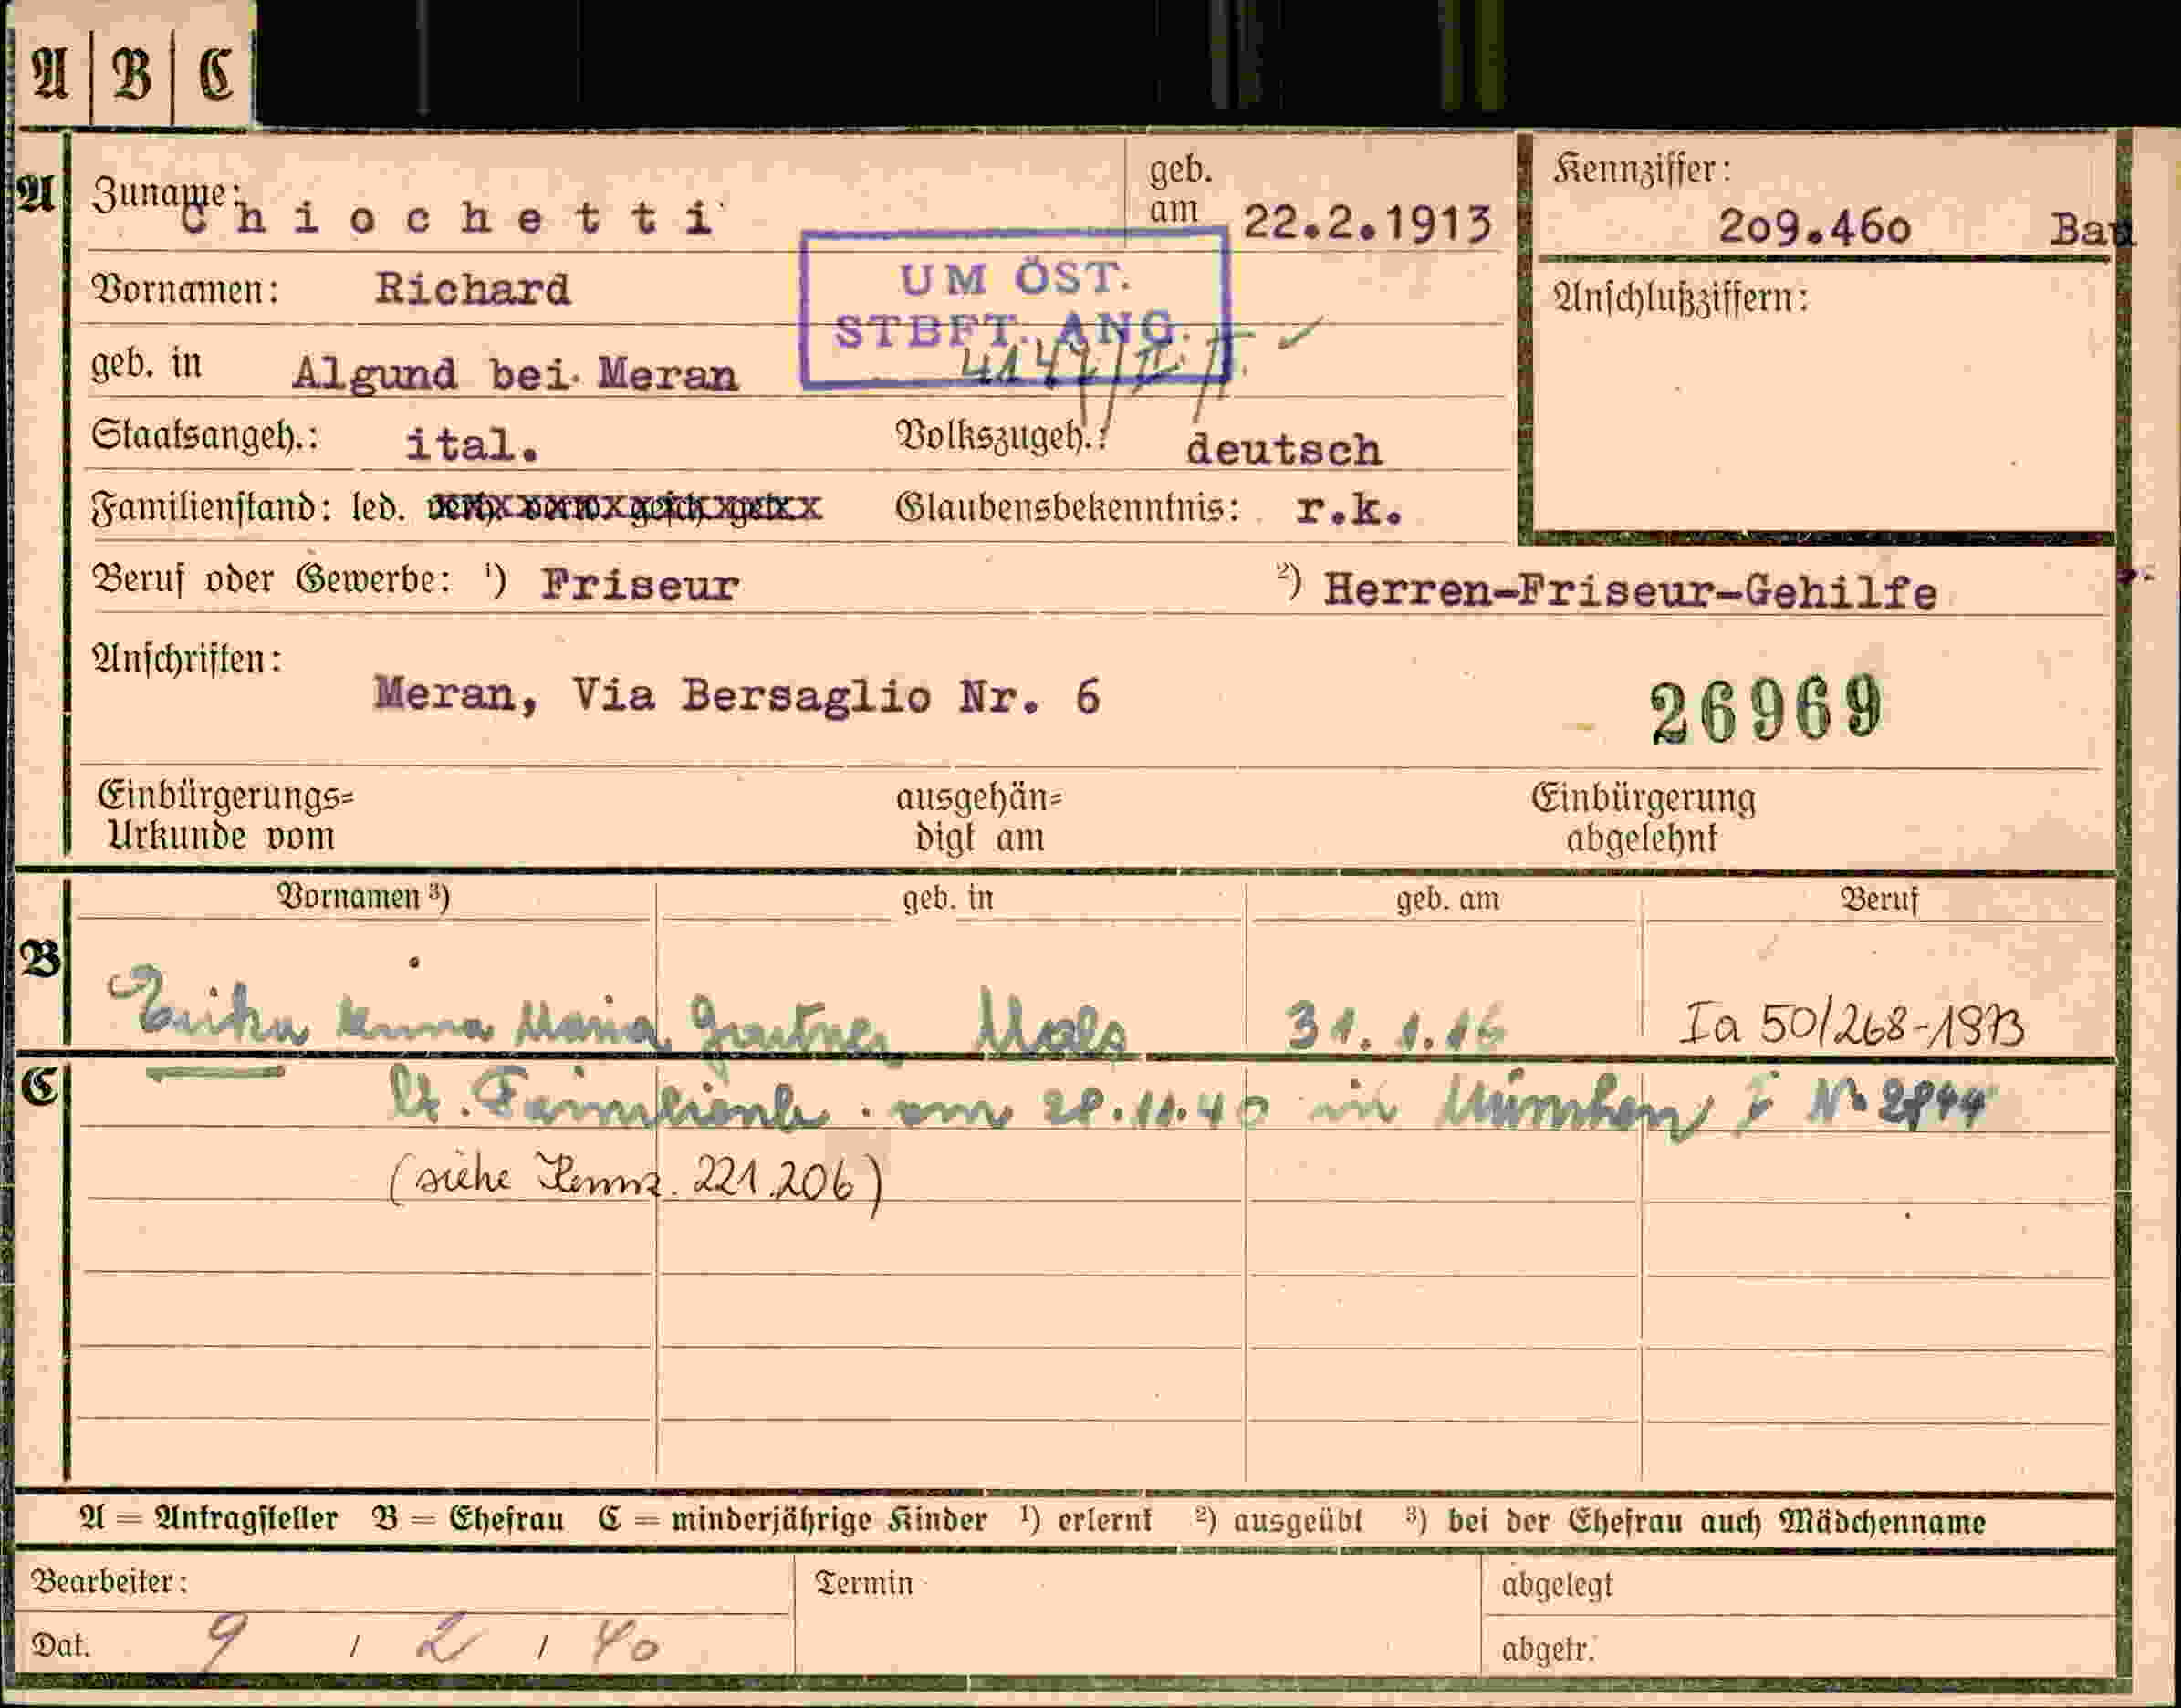 A B C
A
Zuname: Chiochetti geb. am 22.2.1913
Kennziffer: 209.460 Bau
Vornamen: Richard
UM ÖST.
STBFT. ANG.
4147/II.
Anschlußziffern:
geb. in Algund bei Meran
Staatsangeh.: ital. Volkszugeh.: deutsch
Familienstand: led. Glaubensbekenntnis: r.k.
Beruf oder Gewerbe: ¹) Friseur ²) Herren-Friseur-Gehilfe
Anschriften:
Meran, Via Bersaglio Nr. 6
26969
Einbürgerungs= Urkunde vom ausgehän= digt am Einbürgerung abgelehnt
Vornamen ³) geb. in geb. am Beruf
B
Erika Anna Maria Gartner Mals 31.1.16 Ia 50/268-1973
C
lt. Familienb. am 28.11.40 in München I No 2844
(siehe Kennz. 221.206)
A = Antragsteller B = Ehefrau C = minderjährige Kinder ¹) erlernt ²) ausgeübt ³) bei der Ehefrau auch Mädchenname
Bearbeiter: Termin abgelegt
Dat. 9 / 2 / 40 abgetr.